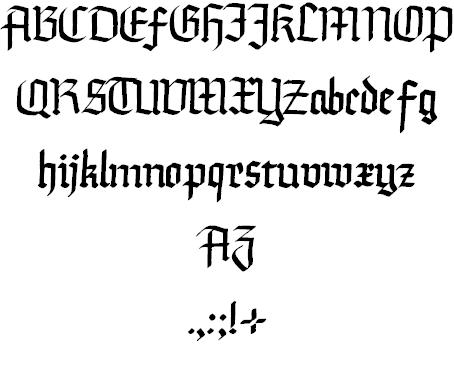 ABCDEFGHIJKLMNOP
QRSTUVWXYZabcdefg
hijklmnopqrstuvwxyz
AZ
.,:;!+